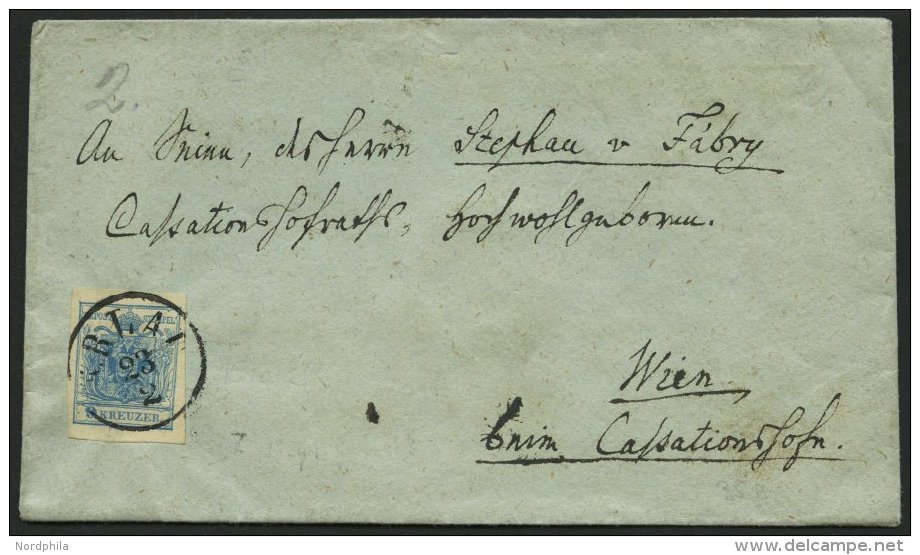 2.
An Seine, des Herrn Stephan v Fábry
Cassationshofraths, Hochwohlgeboren.
KPOST STEMPEL
23
2
9 KREUZER
Wien
beim Cassationshofe.
Nordphila
www.delcampe.net